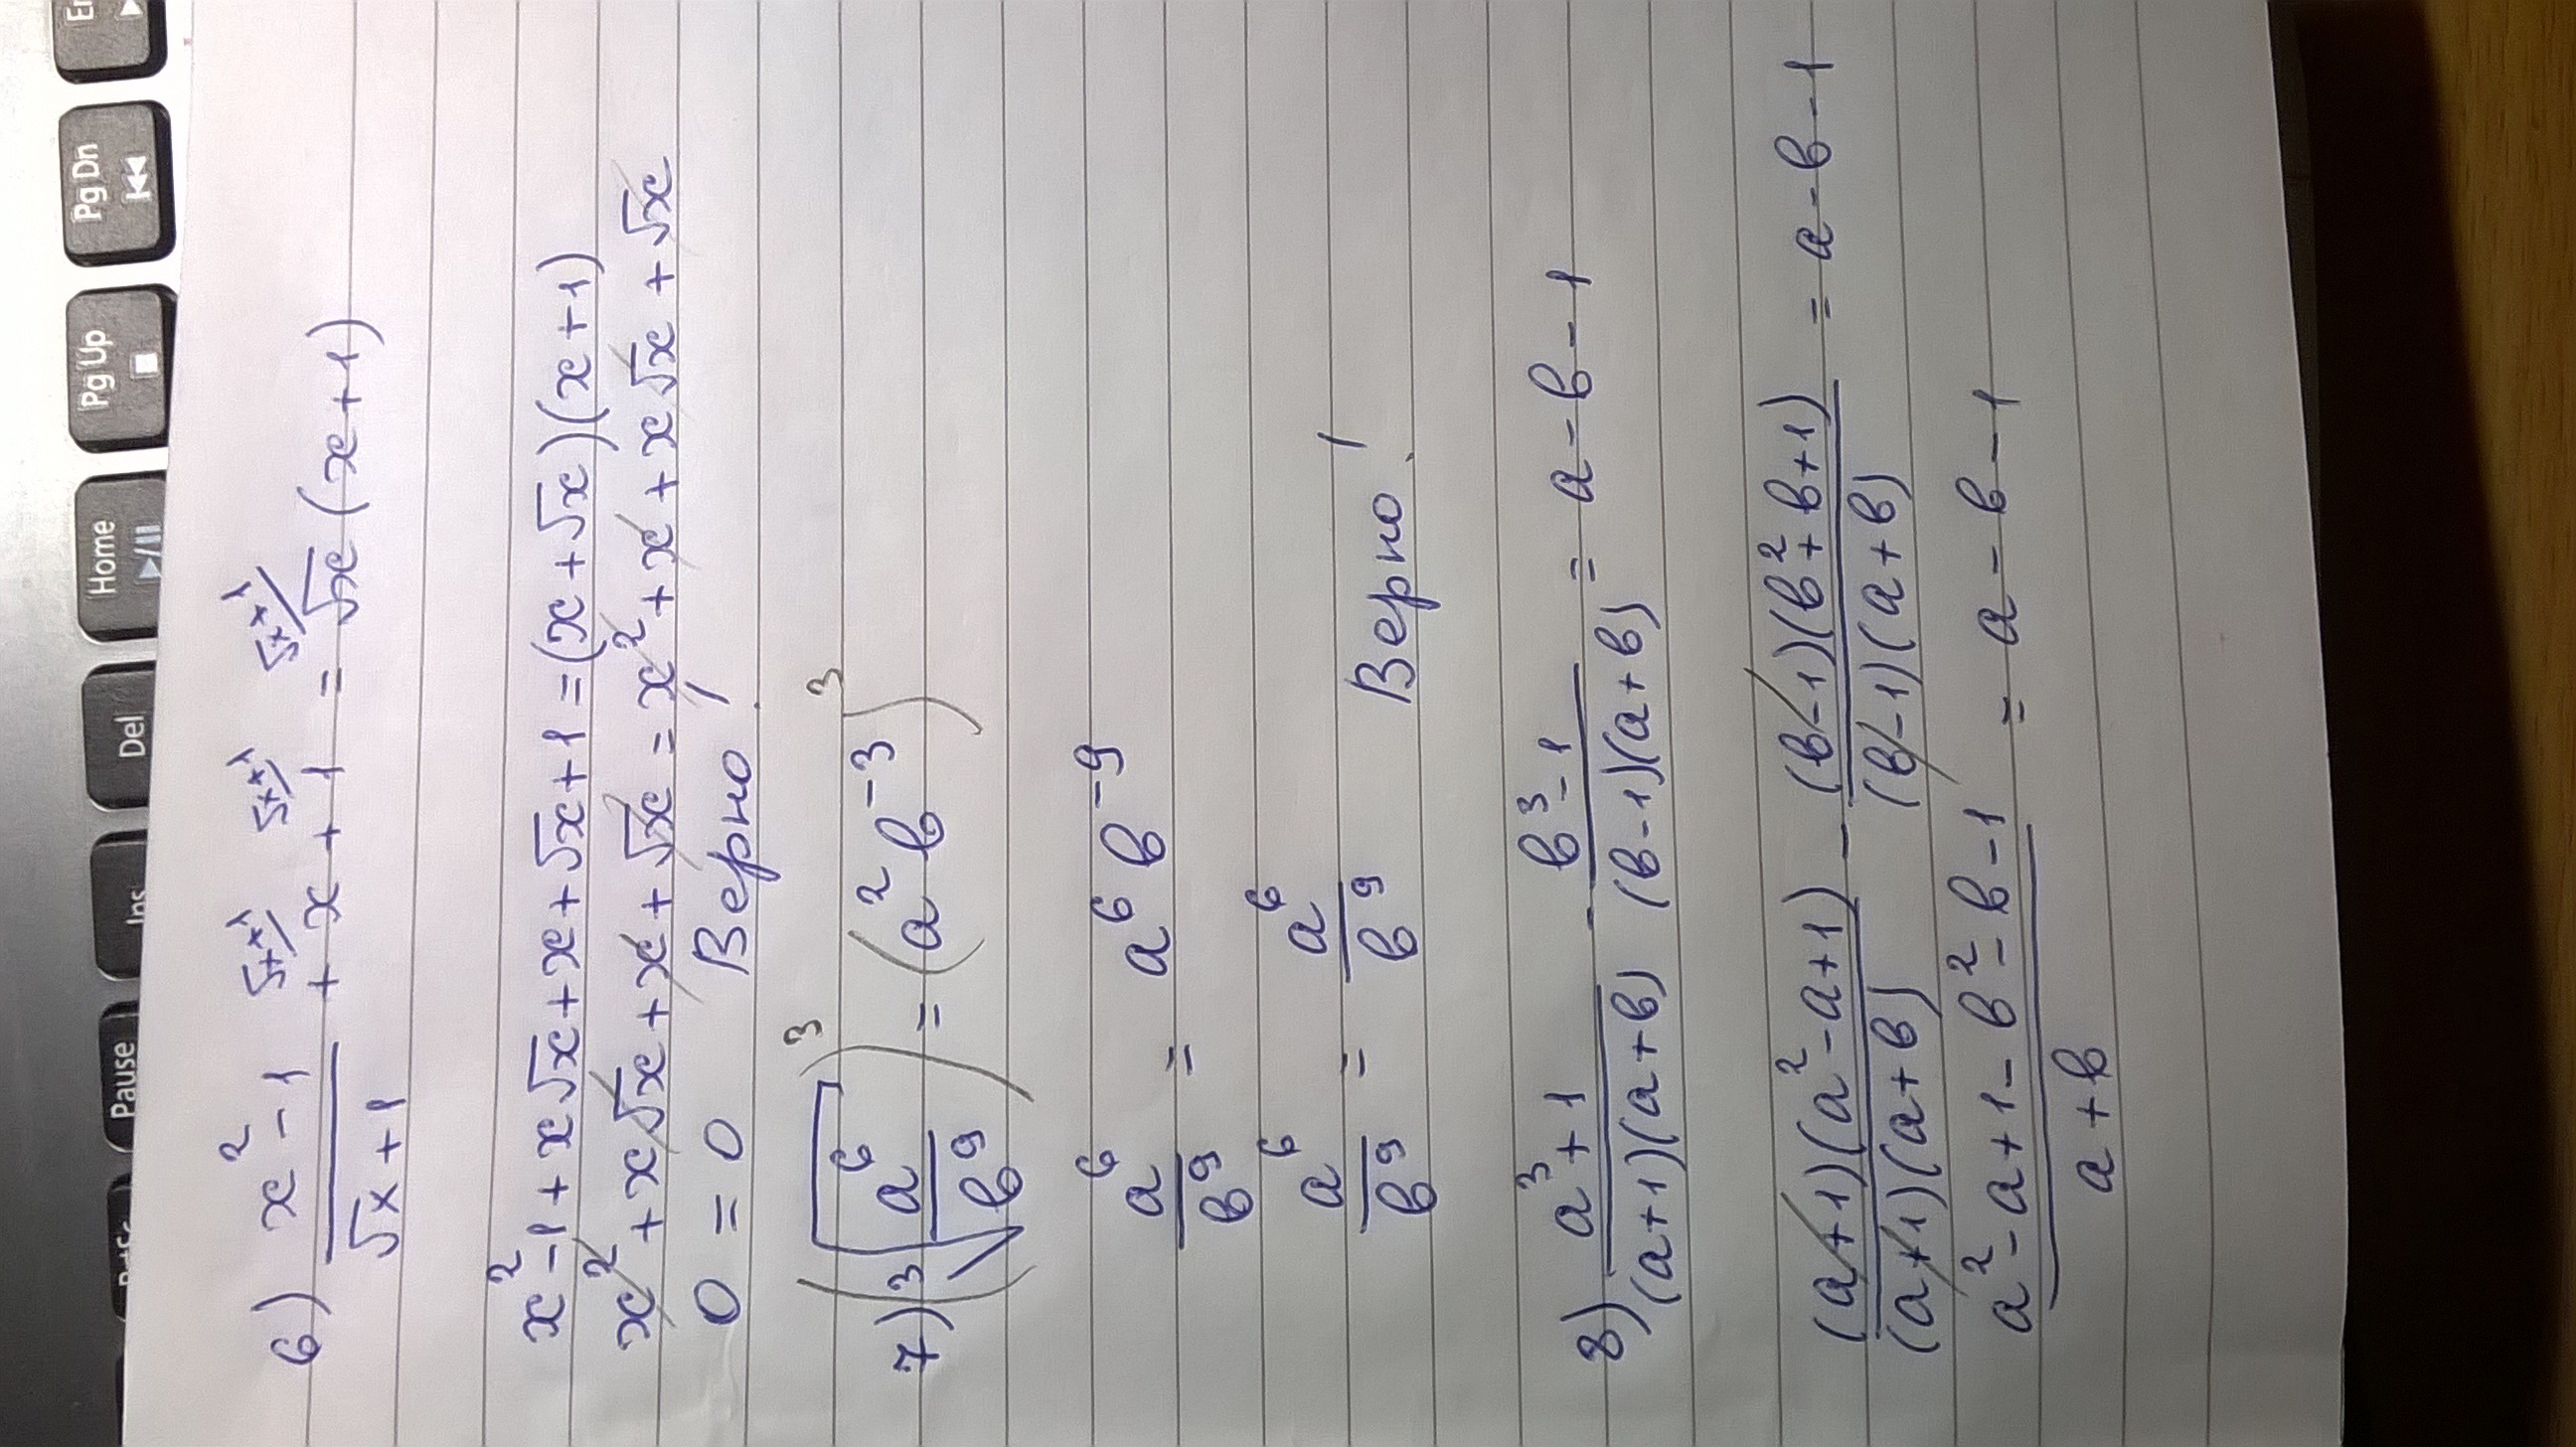 En
Pg Dn
Pg Up
Home
Del
Ins
Pause
6) (x² - 1)/(√x + 1) + x + 1 = √x (x + 1)
√x+1/ √x+1/ √x+1/
x² - 1 + x√x + x + √x + 1 = (x + √x)(x + 1)
x² + x√x + x + √x = x² + x + x√x + √x
0 = 0 Верно!
7) (³√(a⁶/b⁹))³ = (a² b⁻³)³
a⁶/b⁹ = a⁶ b⁻⁹
a⁶/b⁹ = a⁶/b⁹ Верно!
8) (a³ + 1)/((a+1)(a+b)) - (b³ - 1)/((b-1)(a+b)) = a - b - 1
((a+1)(a² - a + 1))/((a+1)(a+b)) - ((b-1)(b² + b + 1))/((b-1)(a+b)) = a - b - 1
(a² - a + 1 - b² - b - 1)/(a + b) = a - b - 1